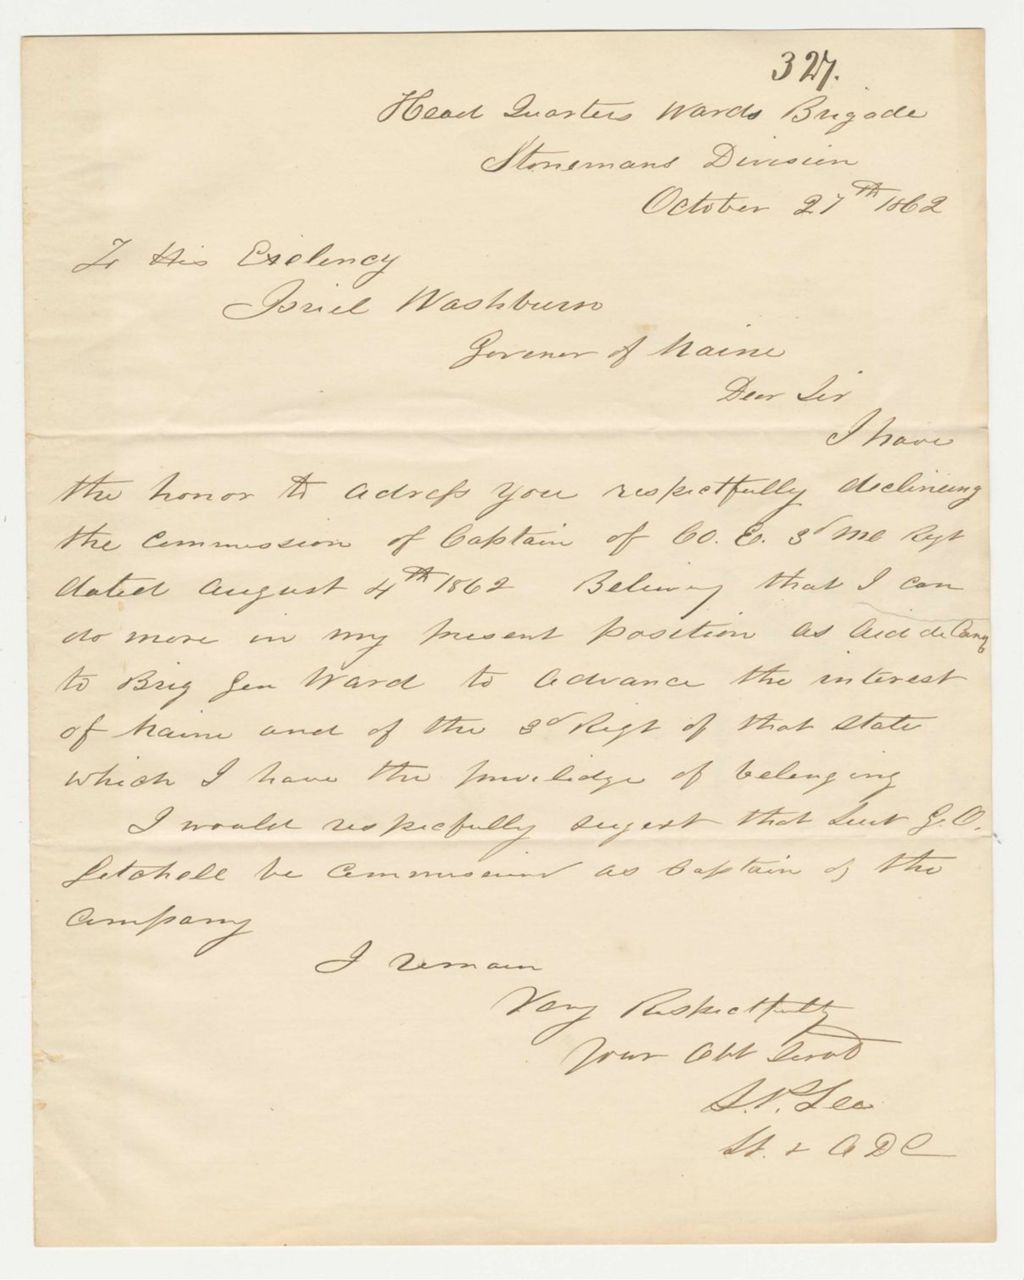 327.
Head Quarters Wards Brigade
Stonemans Division
October 27th 1862
To His Exelency
Isriel Washburn
Govener of Maine
Dear Sir
I have
the honor to adress you respectfully declineing
the commission of Captain of Co. E. 3d Me Regt
dated August 4th 1862 Believing that I can
do more in my present position as Aid de Camp
to Brig Gen Ward to advance the interest
of Maine and of the 3d Regt of that State
which I have the priviledge of belonging
I would respectfully sugest that Lieut G. O.
Getchell be commissiened as Captain of the
company
I remain
Very Respectfully
Your Obt Servt
S. P. Lee
Lt. & A D C